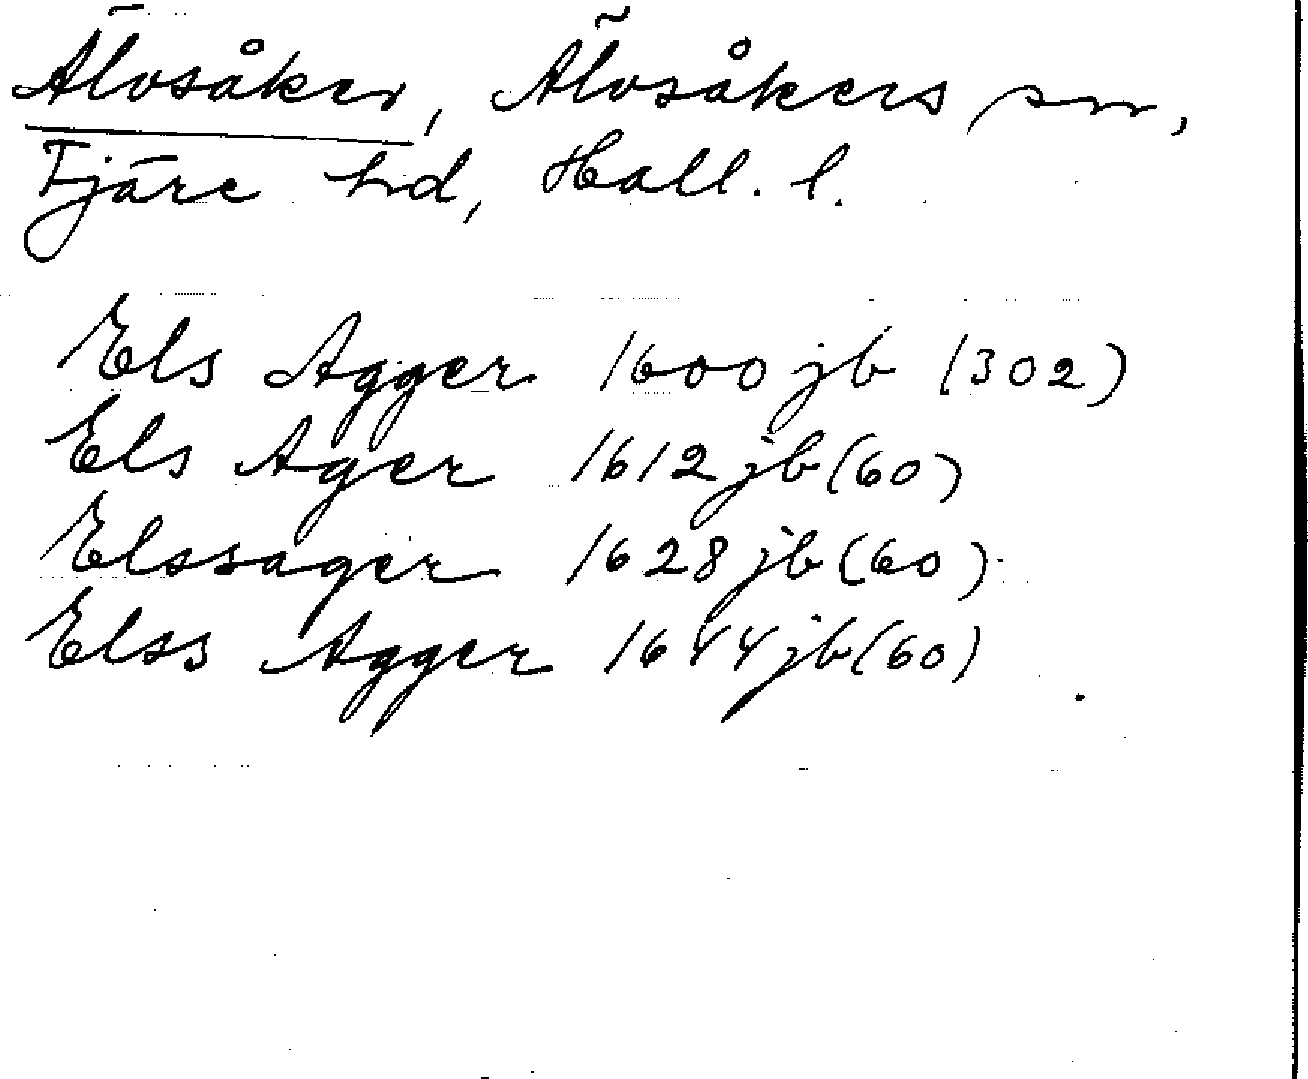 Älvsåker, Älvsåkers sn,
Fjäre hd, Hall. l.
Els Agger 1600 jb (302)
Els Ager 1612 jb (60)
Elssager 1628 jb (60)
Elss Agger 1644 jb (60)